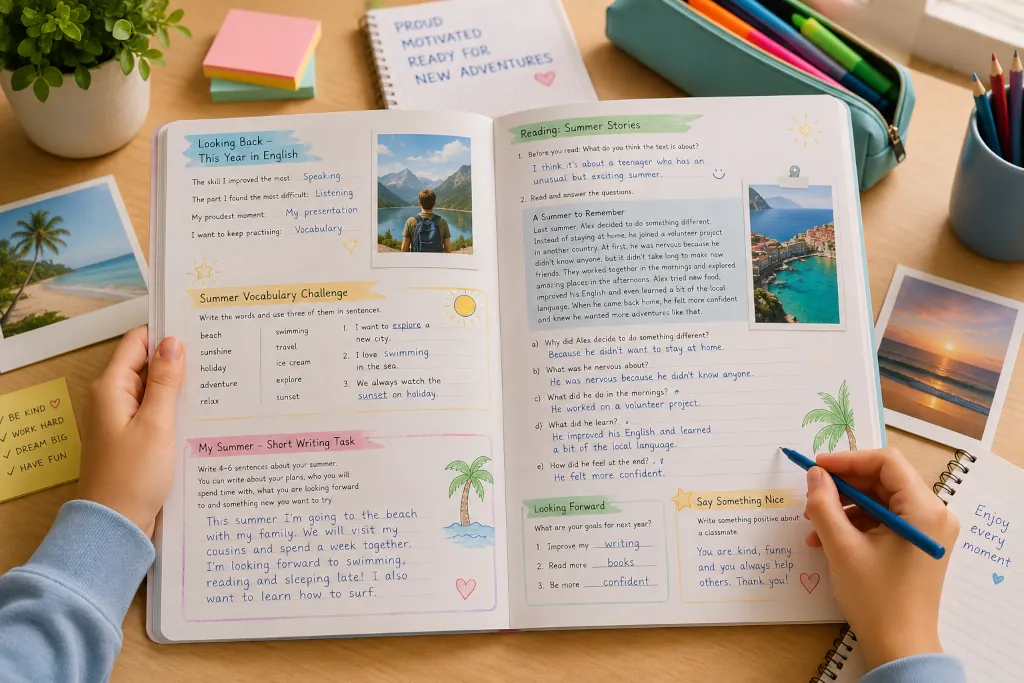 PROUD
MOTIVATED
READY FOR
NEW ADVENTURES
Looking Back –
This Year in English
The skill I improved the most: Speaking
The part I found the most difficult: Listening
My proudest moment: My presentation
I want to keep practising: Vocabulary
Summer Vocabulary Challenge
Write the words and use three of them in sentences.
beach
sunshine
holiday
adventure
relax
swimming
travel
ice cream
explore
sunset
1. I want to explore a
new city.
2. I love swimming
in the sea.
3. We always watch the
sunset on holiday.
My Summer – Short Writing Task
Write 4-6 sentences about your summer.
You can write about your plans, who you will
spend time with, what you are looking forward
to and something new you want to try.
This summer I'm going to the beach
with my family. We will visit my
cousins and spend a week together.
I'm looking forward to swimming,
reading and sleeping late! I also
want to learn how to surf.
Reading: Summer Stories
1. Before you read: What do you think the text is about?
I think it's about a teenager who has an
unusual but exciting summer.
2. Read and answer the questions.
A Summer to Remember
Last summer, Alex decided to do something different.
Instead of staying at home, he joined a volunteer project
in another country. At first, he was nervous because he
didn't know anyone, but it didn't take long to make new
friends. They worked together in the mornings and explored
amazing places in the afternoons. Alex tried new food,
improved his English and even learned a bit of the local
language. When he came back home, he felt more confident
and knew he wanted more adventures like that.
a) Why did Alex decide to do something different?
Because he didn't want to stay at home.
b) What was he nervous about?
He was nervous because he didn't know anyone.
c) What did he do in the mornings?
He worked on a volunteer project.
d) What did he learn?
He improved his English and learned
a bit of the local language.
e) How did he feel at the end?
He felt more confident.
Looking Forward
What are your goals for next year?
1. Improve my writing
2. Read more books
3. Be more confident
Say Something Nice
Write something positive about
a classmate.
You are kind, funny
and you always help
others. Thank you!
✓ BE KIND ♡
✓ WORK HARD
✓ DREAM BIG
✓ HAVE FUN
Enjoy
every
moment